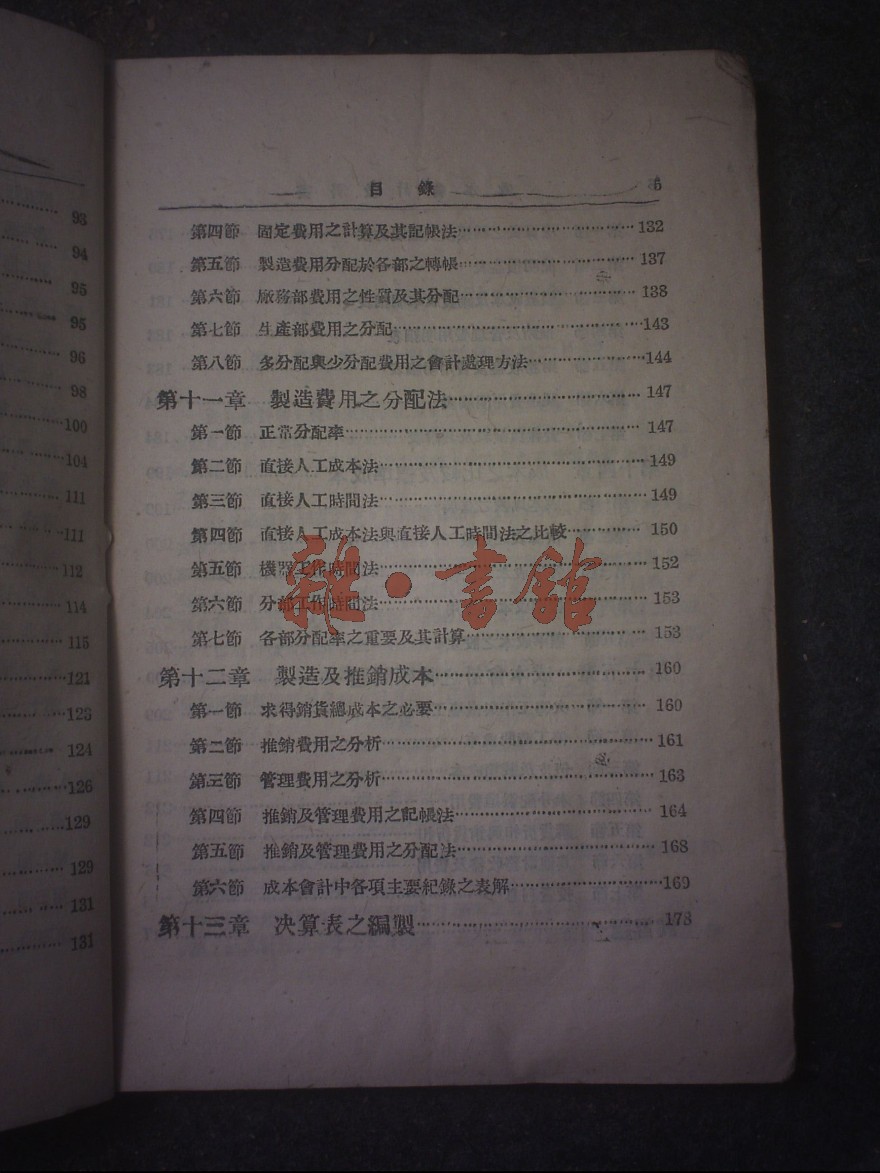 93
94
95
95
96
98
100
104
111
111
112
114
115
121
123
124
126
129
129
131
131
目錄 5
第四節 固定費用之計算及其記帳法 132
第五節 製造費用分配於各部之轉帳 137
第六節 廠務部費用之性質及其分配 138
第七節 生產部費用之分配 143
第八節 多分配與少分配費用之會計處理方法 144
第十一章 製造費用之分配法 147
第一節 正常分配率 147
第二節 直接人工成本法 149
第三節 直接人工時間法 149
第四節 直接人工成本法與直接人工時間法之比較 150
第五節 機器工作時間法 152
第六節 分部工作時間法 153
第七節 各部分配率之重要及其計算 153
第十二章 製造及推銷成本 160
第一節 求得銷貨總成本之必要 160
第二節 推銷費用之分析 161
第三節 管理費用之分析 163
第四節 推銷及管理費用之記帳法 164
第五節 推銷及管理費用之分配法 168
第六節 成本會計中各項主要紀錄之表解 169
第十三章 決算表之編製 178
雜·書館